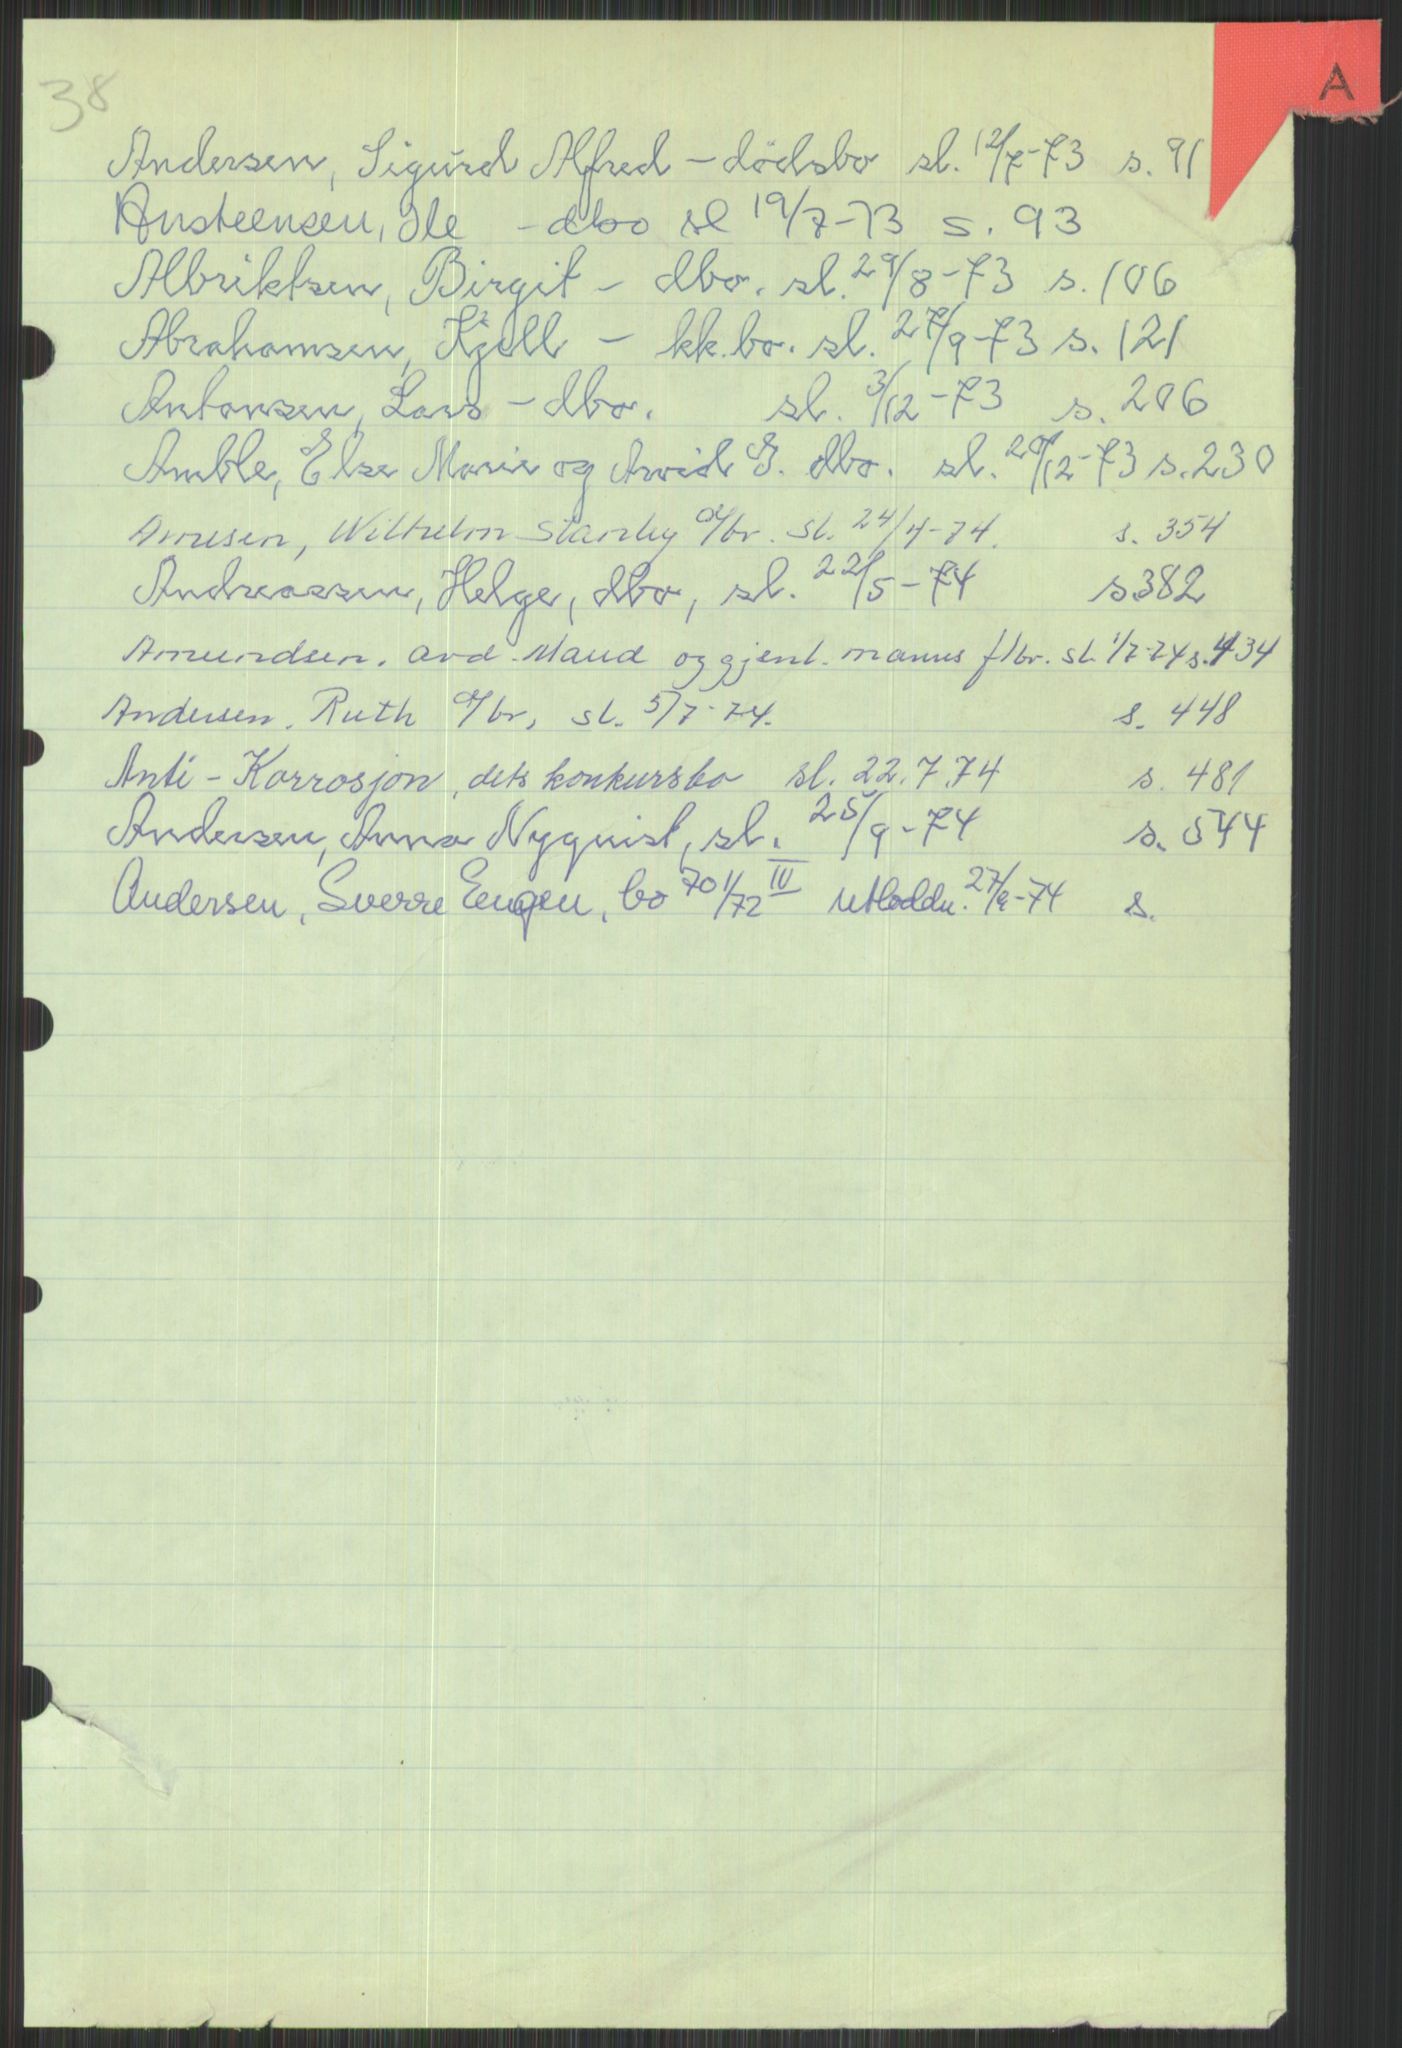 38
A
Andersen, Sigurd Alfred - dødsbo sl. 12/7-73 s. 91
Ansteensen, Ole - dbo sl 19/7-73 s. 93
Albriktsen, Birgit - dbo. sl. 29/8-73 s. 106
Abrahamsen, Kjell - kk.bo. sl. 27/9-73 s. 121
Antonsen, Lars - dbo. sl. 3/12-73 s. 206
Amble, Else Marie og Arvid G. dbo. sl. 20/12-73 s. 230
Arnesen, Wilhelm Stanley d/br. sl. 24/4-74. s. 354
Andreassen, Helge, dbo, sl. 22/5-74 s 382
Amundsen. avd. Maud og gjenl. manns f/br. sl. 1/7-74 s. 434
Andersen. Ruth d/br, sl. 5/7-74. s. 448
Anti-Korrosjon, dets konkursbo sl. 22.7.74 s. 481
Andersen, Anna Nyquist, sl. 25/9-74 s. 544
Andersen, Sverre Eugen, bo 701/72 IV utloddn. 27/9-74 s.